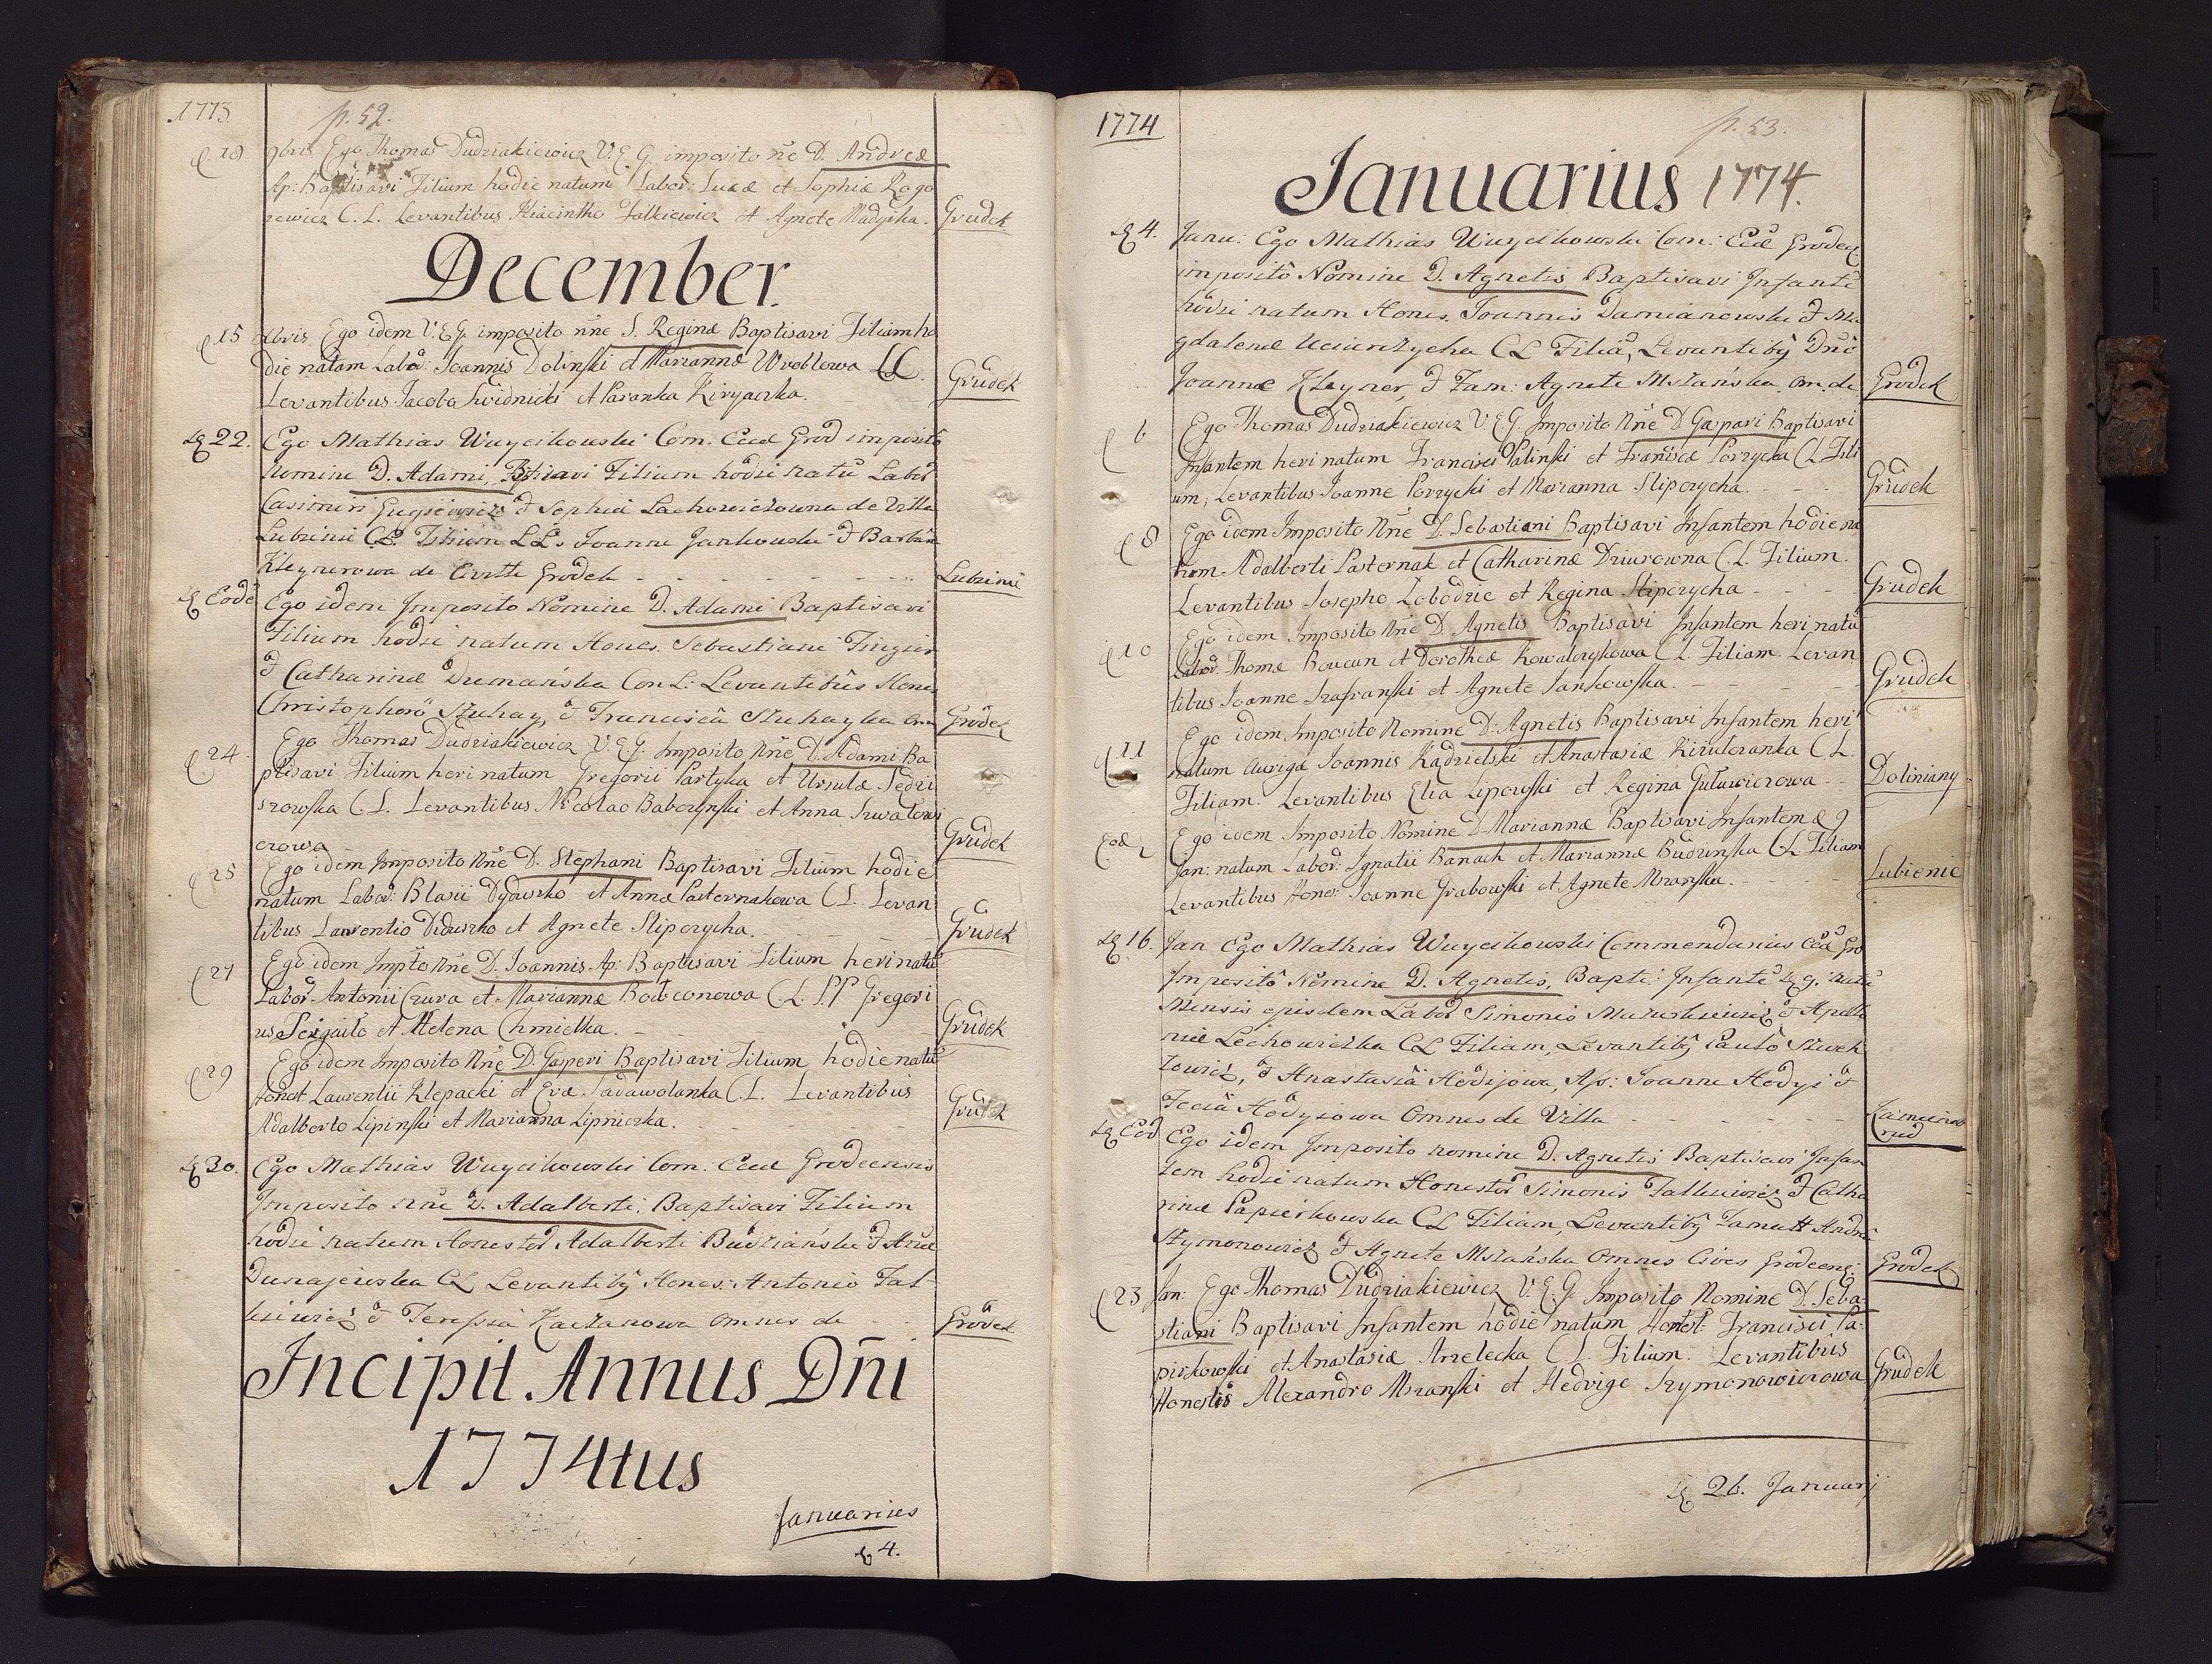 1773
p. 52.
18 9bris Ego Thomas Dudziakiewicz V. E. G. imposito nẽe D. Andreæ
Ap: Baptisavi Filium hodie natum Labor: Lucæ et Sophiæ Rogo
zewicz C. L. Levantibus Hiacintho Falkiewicz et Agnete Madycka. Grudek
December.
15 Xbris Ego idem V. E. G. imposito nñe S. Reginæ Baptisavi Filiam ho
die natam Labor: Joannis Dolinski et Mariannæ Wroblowa LC.
Levantibus Jacobo Swidnicki et Paranka Kiryanka. Grudek
22. Ego Mathias Wuycikowski Com. Eccl Grod imposito
Nomine D. Adami, Btisavi Filium hodie natũ Labor
Casimiri et Sophiæ Lachowiczowna de Villa
Lubinie CL. Filium LLs Joanne Jankowski et Barbara
Kleynerowa de Civitte Grodek - - - Lubinie
Eodẽ Ego idem Imposito Nomine D. Adami Baptisavi
Filium hodie natum Hones. Sebastiani
et Catharinæ Dumańska Con L: Levantibus Hones
Christophoro Stuhay, et Francisca Stuhayka om Grodek
24. Ego Thomas Dudziakiewicz V. E. G. Imposito Nñe D. Adami Ba
ptisavi Filium heri natum Gregorii Partyka et Ursulæ Sędzi
szowska C. L. Levantibus Nicolao Babczynski et Anna
czowa Grudek
25 Ego idem Imposito Nñe D. Stephani Baptisavi Filium hodie
natum Labor: Blasii Dyduszko et Annæ Pasternakowa C L. Levan
tibus Laurentio Diduszko et Agnete Sliperycha. Grudek
27 Ego idem Impto Nñe D. Joannis Ap: Baptisavi Filium heri natũ
Labor Antonii Czura et Mariannæ C. L. PP Gregori
us et Helena Chmielka. Grudek
29 Ego idem Imposito Nñe D. Gasperi Baptisavi Filium hodie natũ
Honest Laurentii Klepacki et Evæ C. L. Levantibus
Adalberto Lipinski et Marianna Lipnicka. Grudek
30. Ego Mathias Wuycikowski Com. Eccl Grodecensis
Imposito Nñe D. Adalberti, Baptisavi Filium
hodie natum Honestor Adalberti Budziański et Annæ
Dunajewska CL Levantibg Hones: Antonio Fal-
kiewicz et Teressia Kaczanowa Omnes de - - Grodek
Incipit Annus Dñi
1774tus
Januarius
4.
1774
p. 53.
Januarius 1774.
4. Janu: Ego Mathias Wuycikowski Com: Eccl Grodec
imposito Nomine D. Agnetis Baptisavi Infantẽ
hodie natum Hones. Joannis Damianowski et Ma
gdalenæ CL Filia, Levantibg Dnõ
Joanne Kleyner, et Fam: Agnete Mszańska om. de Grodek
6 Ego Thomas Dudziakiewicz V E G. Imposito Nñe D Gaspari Baptisavi
Infantem heri natum Francisci Palinski et Franciscæ Porzycka C. L Fili
um, Levantibus Joanne Porzycki et Marianna Sliperycha. - - - Grudek
8 Ego idem Imposito Nñe D. Sebastiani Baptisavi Infantem hodie na
tum Adalberti Pasternak et Catharinæ Dziurowna C. L. Filium.
Levantibus Josepho Lobodzie et Regina Sliperycha - - - Grudek
10 Ego idem Imposito Nñe D. Agnetis Baptisavi Infantem heri natũ
Labor: Thomæ Boucun et Dorotheæ Kowalczykowa C L. Filiam. Levan
tibus Joanne Szafranski et Agnete Jankowska. - - - Grudek
11 Ego idem Imposito Nomine D. Agnetis Baptisavi Infantem heri
natum Auriga Joannis Kądzielski et Anastasiæ C L.
Filiam. Levantibus Elia Lipowski et Regina Gutowiczowa - - Doliniany
Eod Ego idem Imposito Nomine D. Mariannæ Baptisavi Infantem 9
Jan: natum Labor: Ignatii Banach et Mariannæ Budzinska C L Filiam
Levantibus Hones: Joanne Grabowski et Agnete Mszanska. - - - Lubienie
16. Jan Ego Mathias Wuycikowski Commendarius Eccl Gro
Imposito Nomine D. Agnetis, Bapti: Infantẽ 9. natũ
Mensis ejusdem Labor Simonis Mazurkiewicz et Apollo
niæ Lechowiczka CL Filiam, Levantibg Paulo
towicz, et Anastasiã Hodijowa, Ass: Joanne Hodyi et
Teciã Hodyiowa Omnes de Villa - - - -
Eod Ego idem Imposito nomine D. Agnetis Baptisavi Infan
tem hodie natum Honestor Simonis Falkiewicz et Catha
rinæ Papierkowska CL Filiam, Levantibg Famatt Andreã
Szymonowicz et Agnete Mszańska Omnes Cives Grodecens. Grodek
23 Jan: Ego Thomas Dudziakiewicz V. E. G. Imposito Nomine D. Seba-
stiani Baptisavi Infantem hodie natum Honest: Francisci Pa-
pirkowski et Anastasiæ Anzelecka C L. Filium. Levantibus
Honestis Alexandro Mszanski et Hedvige Szymonowiczowa Grudek
26. Januarij